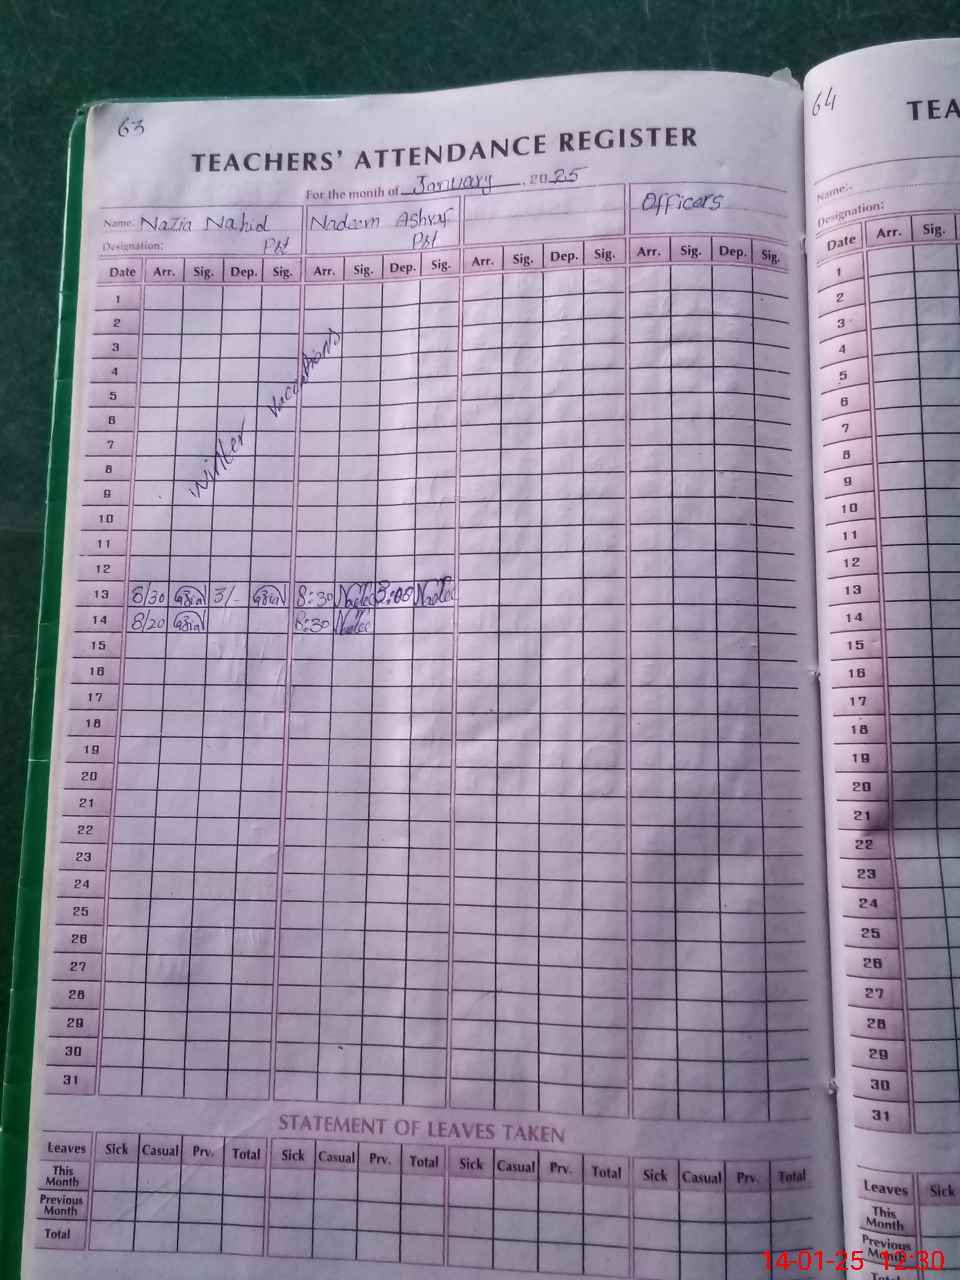 63
TEACHERS' ATTENDANCE REGISTER
For the month of January, 2025
Name: Nazia Nahid Nadeem Ashraf Officers
Designation: Pst Pst
Date Arr. Sig. Dep. Sig. Arr. Sig. Dep. Sig. Arr. Sig. Dep. Sig. Arr. Sig. Dep. Sig.
1
2
3
4
5
6
7
8
9
winter vaccations
10
11
12
13 8/30 3/- 8:30 3:00
14 8/20 8:30
15
16
17
18
19
20
21
22
23
24
25
26
27
28
29
30
31
STATEMENT OF LEAVES TAKEN
Leaves Sick Casual Prv. Total Sick Casual Prv. Total Sick Casual Prv. Total Sick Casual Prv. Total
This Month
Previous Month
Total
64
TEA
Name:
Designation:
Date Arr. Sig.
1
2
3
4
5
6
7
8
9
10
11
12
13
14
15
16
17
18
19
20
21
22
23
24
25
26
27
28
29
30
31
Leaves Sick
This Month
Previous Month
14-01-25 12:30